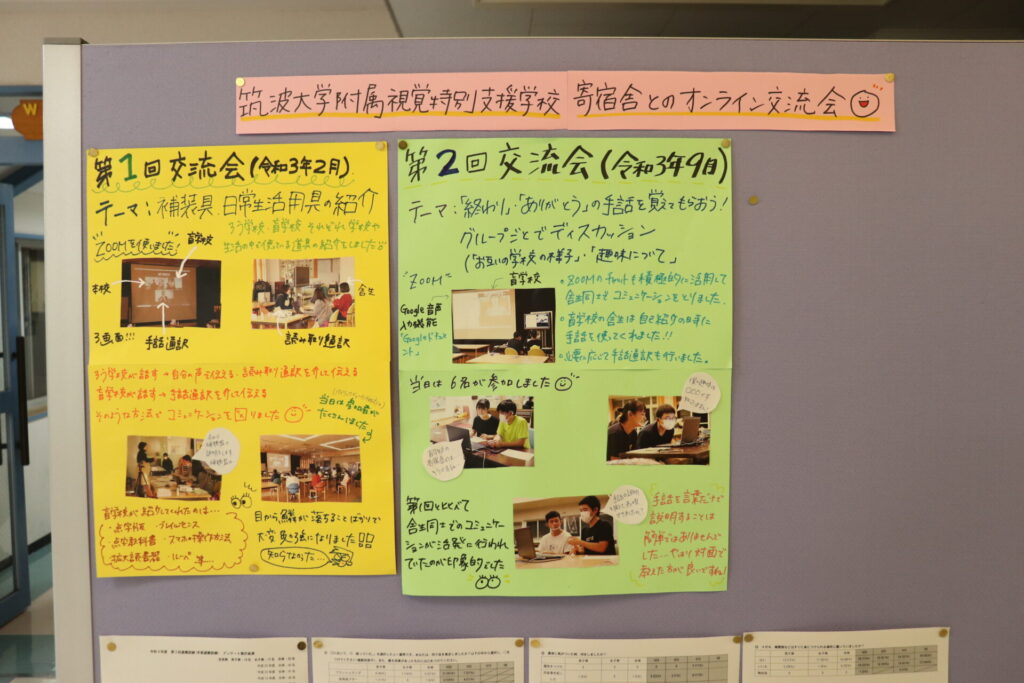 筑波大学附属視覚特別支援学校 寄宿舎とのオンライン交流会
第1回交流会(令和3年2月)
テーマ:補装具、日常生活用具の紹介
ろう学校・盲学校 それぞれで学校や
生活の中で使っている道具の紹介をしました
ZOOMを使いました!
盲学校
本校
舎生
3画面!!!
手話通訳
読み取り通訳
ろう学校が話す→自分の声で伝える・読み取り通訳を介して伝える
盲学校が話す→手話通訳を介して伝える
そのような方法でコミュニケーションを図りました
当日は参加者が
たくさんいました
盲学校が紹介してくれたのは…
・点字付
・ブレイルセンス
・点字教科書
・スマホの操作方法
・拡大読書器
・ルーペ 等…
目から鱗が落ちることばかりで
大変勉強になりました!!
知らなかった…
第2回交流会(令和3年9月)
テーマ:「終わり」・「ありがとう」の手話を覚えてもらおう!
グループごとでディスカッション
(「お互いの学校の様子」・「趣味について」
"ZOOM"
盲学校
Google音声
入力機能
「Googleドキュメ
ント」
・ZOOMのチャットも積極的に活用して
舎生同士でコミュニケーションをとりました。
・盲学校の舎生は自己紹介の時に
手話を使ってくれました!!
・必要に応じて手話通訳も行いました。
当日は6名が参加しました
第1回と比べて
舎生同士でのコミュニケー
ションが活発に行われ
ていたのが印象的でした
手話を言葉だけで
説明することは
簡単ではありませんで
した…やはり対面で
教えた方が良いですね!